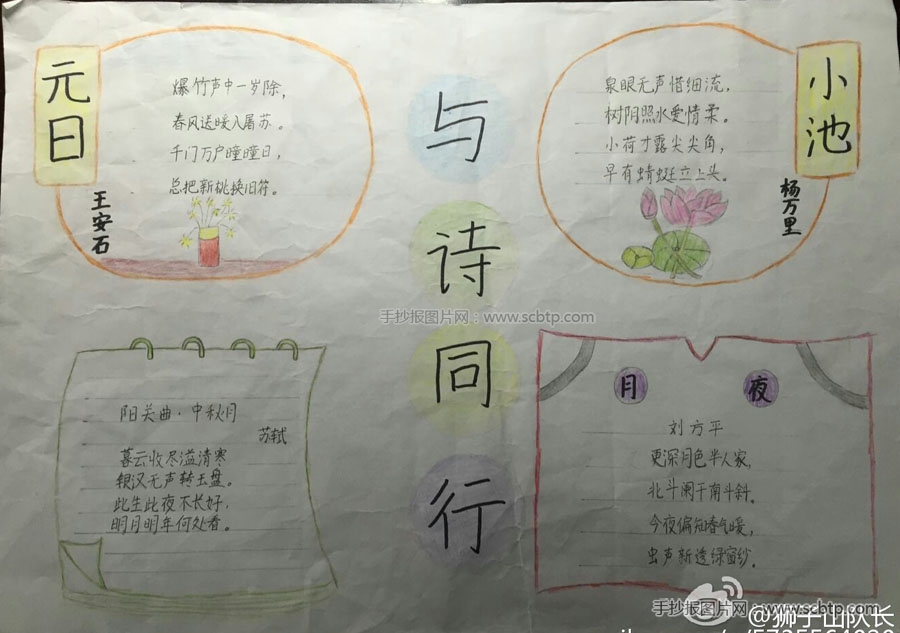 元日
王安石
爆竹声中一岁除，
春风送暖入屠苏。
千门万户曈曈日，
总把新桃换旧符。
与诗同行
小池
杨万里
泉眼无声惜细流，
树阴照水爱情柔。
小荷才露尖尖角，
早有蜻蜓立上头。
手抄报图片网：www.scbtp.com
阳关曲·中秋月
苏轼
暮云收尽溢清寒
银汉无声转玉盘。
此生此夜不长好，
明月明年何处看。
月夜
刘方平
更深月色半人家，
北斗阑干南斗斜。
今夜偏知春气暖，
虫声新透绿窗纱。
手抄报图片网：www.scbtp.com
@狮子山队长